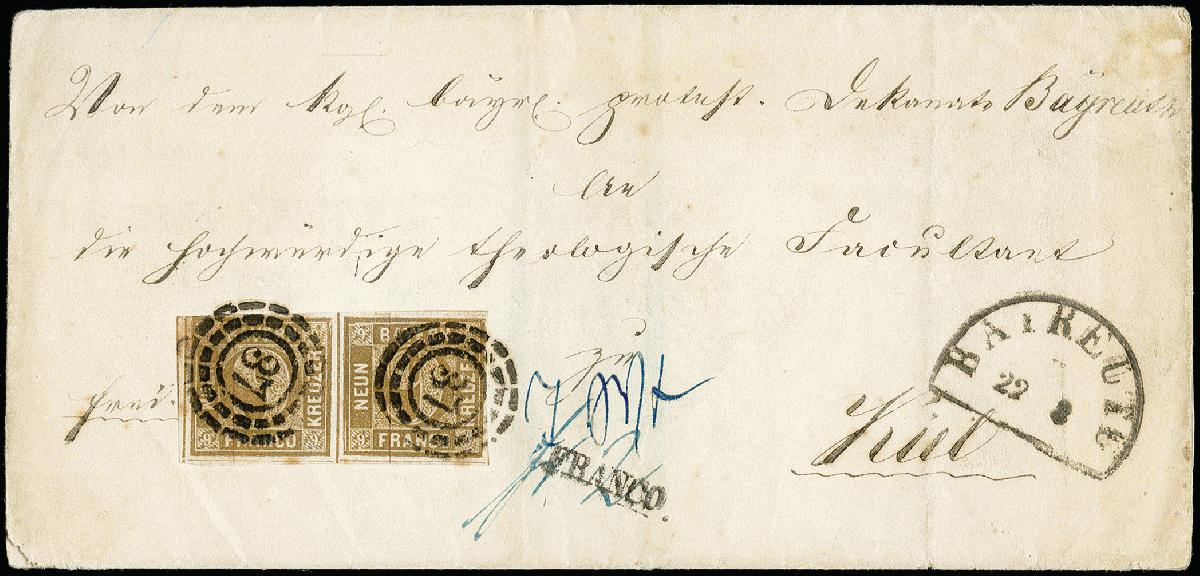 Von dem Kgl. bayr. protest. Dekanate Bayreuth
An
die hochwürdige theologische Facultaet
zu
Kiel
frei.
9 KREUZER
37
9 FRANCO 9
9 B
NEUN
KREUZER
37
9 FRANCO
FRANCO.
BAIREUTH
22 8